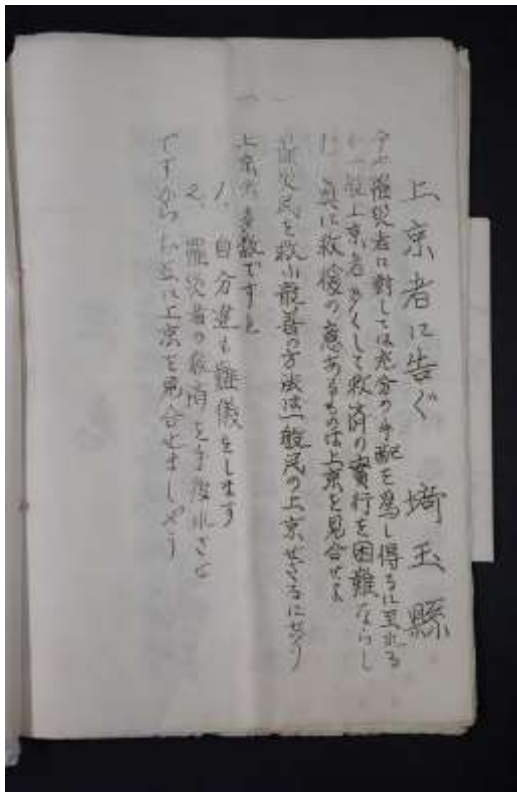 上京者に告ぐ 埼玉縣
今や罹災者に対しては充分の手配を為し得るに至れる
も一般上京者多くして救済の實行を困難ならし
む 真に救援の意あるものは上京を見合せよ
罹災民を救ふ最善の方法は一般民の上京せざるにせう
上京者多数ですと
1、自分達も難儀をします
2、罹災者の救済を手後れさせ
ですからお互に上京を見合せましやう